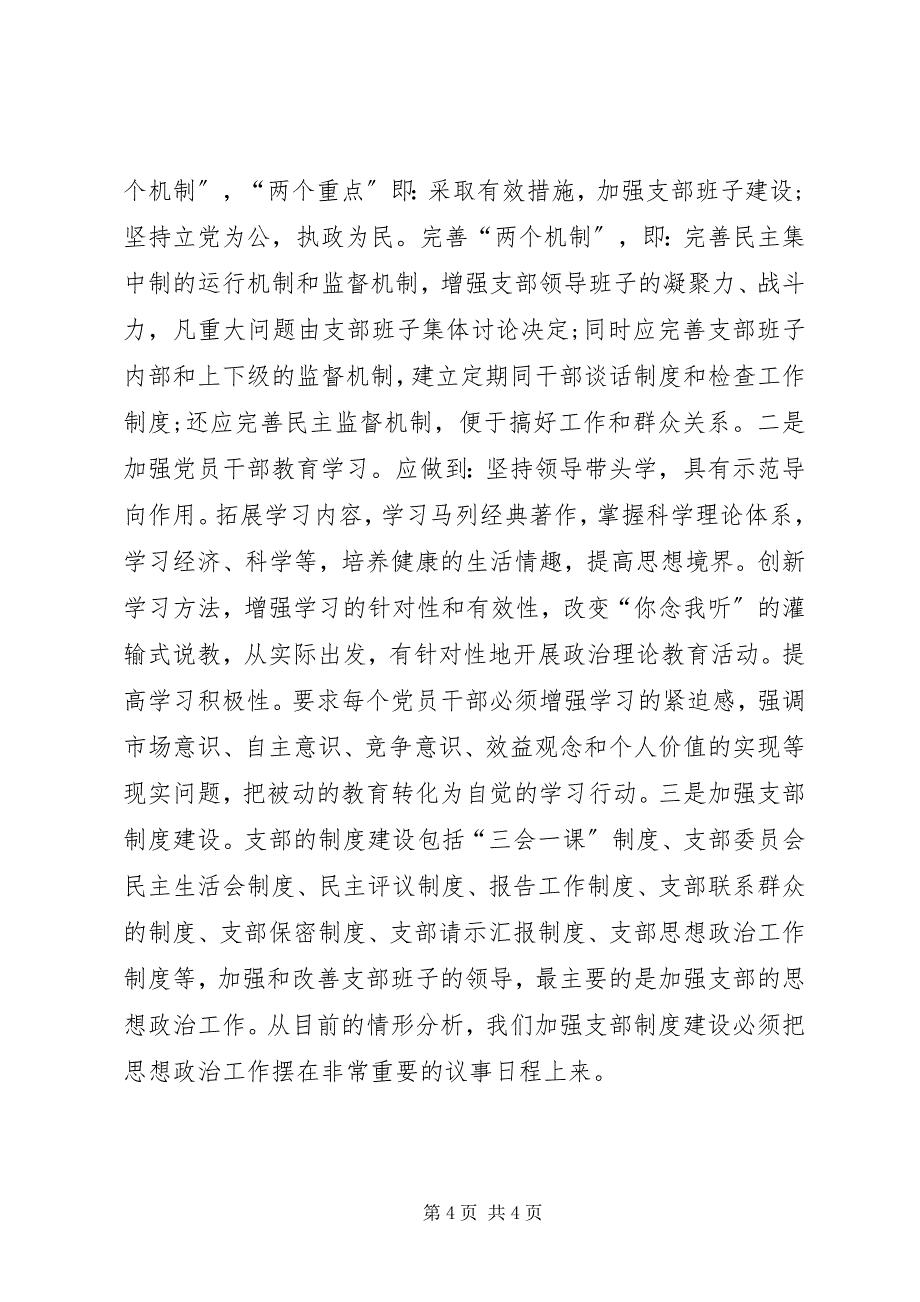 个机制〞，“两个重点〞即：采取有效措施，加强支部班子建设;
坚持立党为公，执政为民。完善“两个机制〞，即：完善民主集
中制的运行机制和监督机制，增强支部领导班子的凝聚力、战斗
力，凡重大问题由支部班子集体讨论决定;同时应完善支部班子
内部和上下级的监督机制，建立定期同干部谈话制度和检查工作
制度;还应完善民主监督机制，便于搞好工作和群众关系。二是
加强党员干部教育学习。应做到：坚持领导带头学，具有示范导
向作用。拓展学习内容，学习马列经典著作，掌握科学理论体系，
学习经济、科学等，培养健康的生活情趣，提高思想境界。创新
学习方法，增强学习的针对性和有效性，改变“你念我听〞的灌
输式说教，从实际出发，有针对性地开展政治理论教育活动。提
高学习积极性。要求每个党员干部必须增强学习的紧迫感，强调
市场意识、自主意识、竞争意识、效益观念和个人价值的实现等
现实问题，把被动的教育转化为自觉的学习行动。三是加强支部
制度建设。支部的制度建设包括“三会一课〞制度、支部委员会
民主生活会制度、民主评议制度、报告工作制度、支部联系群众
的制度、支部保密制度、支部请示汇报制度、支部思想政治工作
制度等，加强和改善支部班子的领导，最主要的是加强支部的思
想政治工作。从目前的情形分析，我们加强支部制度建设必须把
思想政治工作摆在非常重要的议事日程上来。
第 4 页 共 4 页